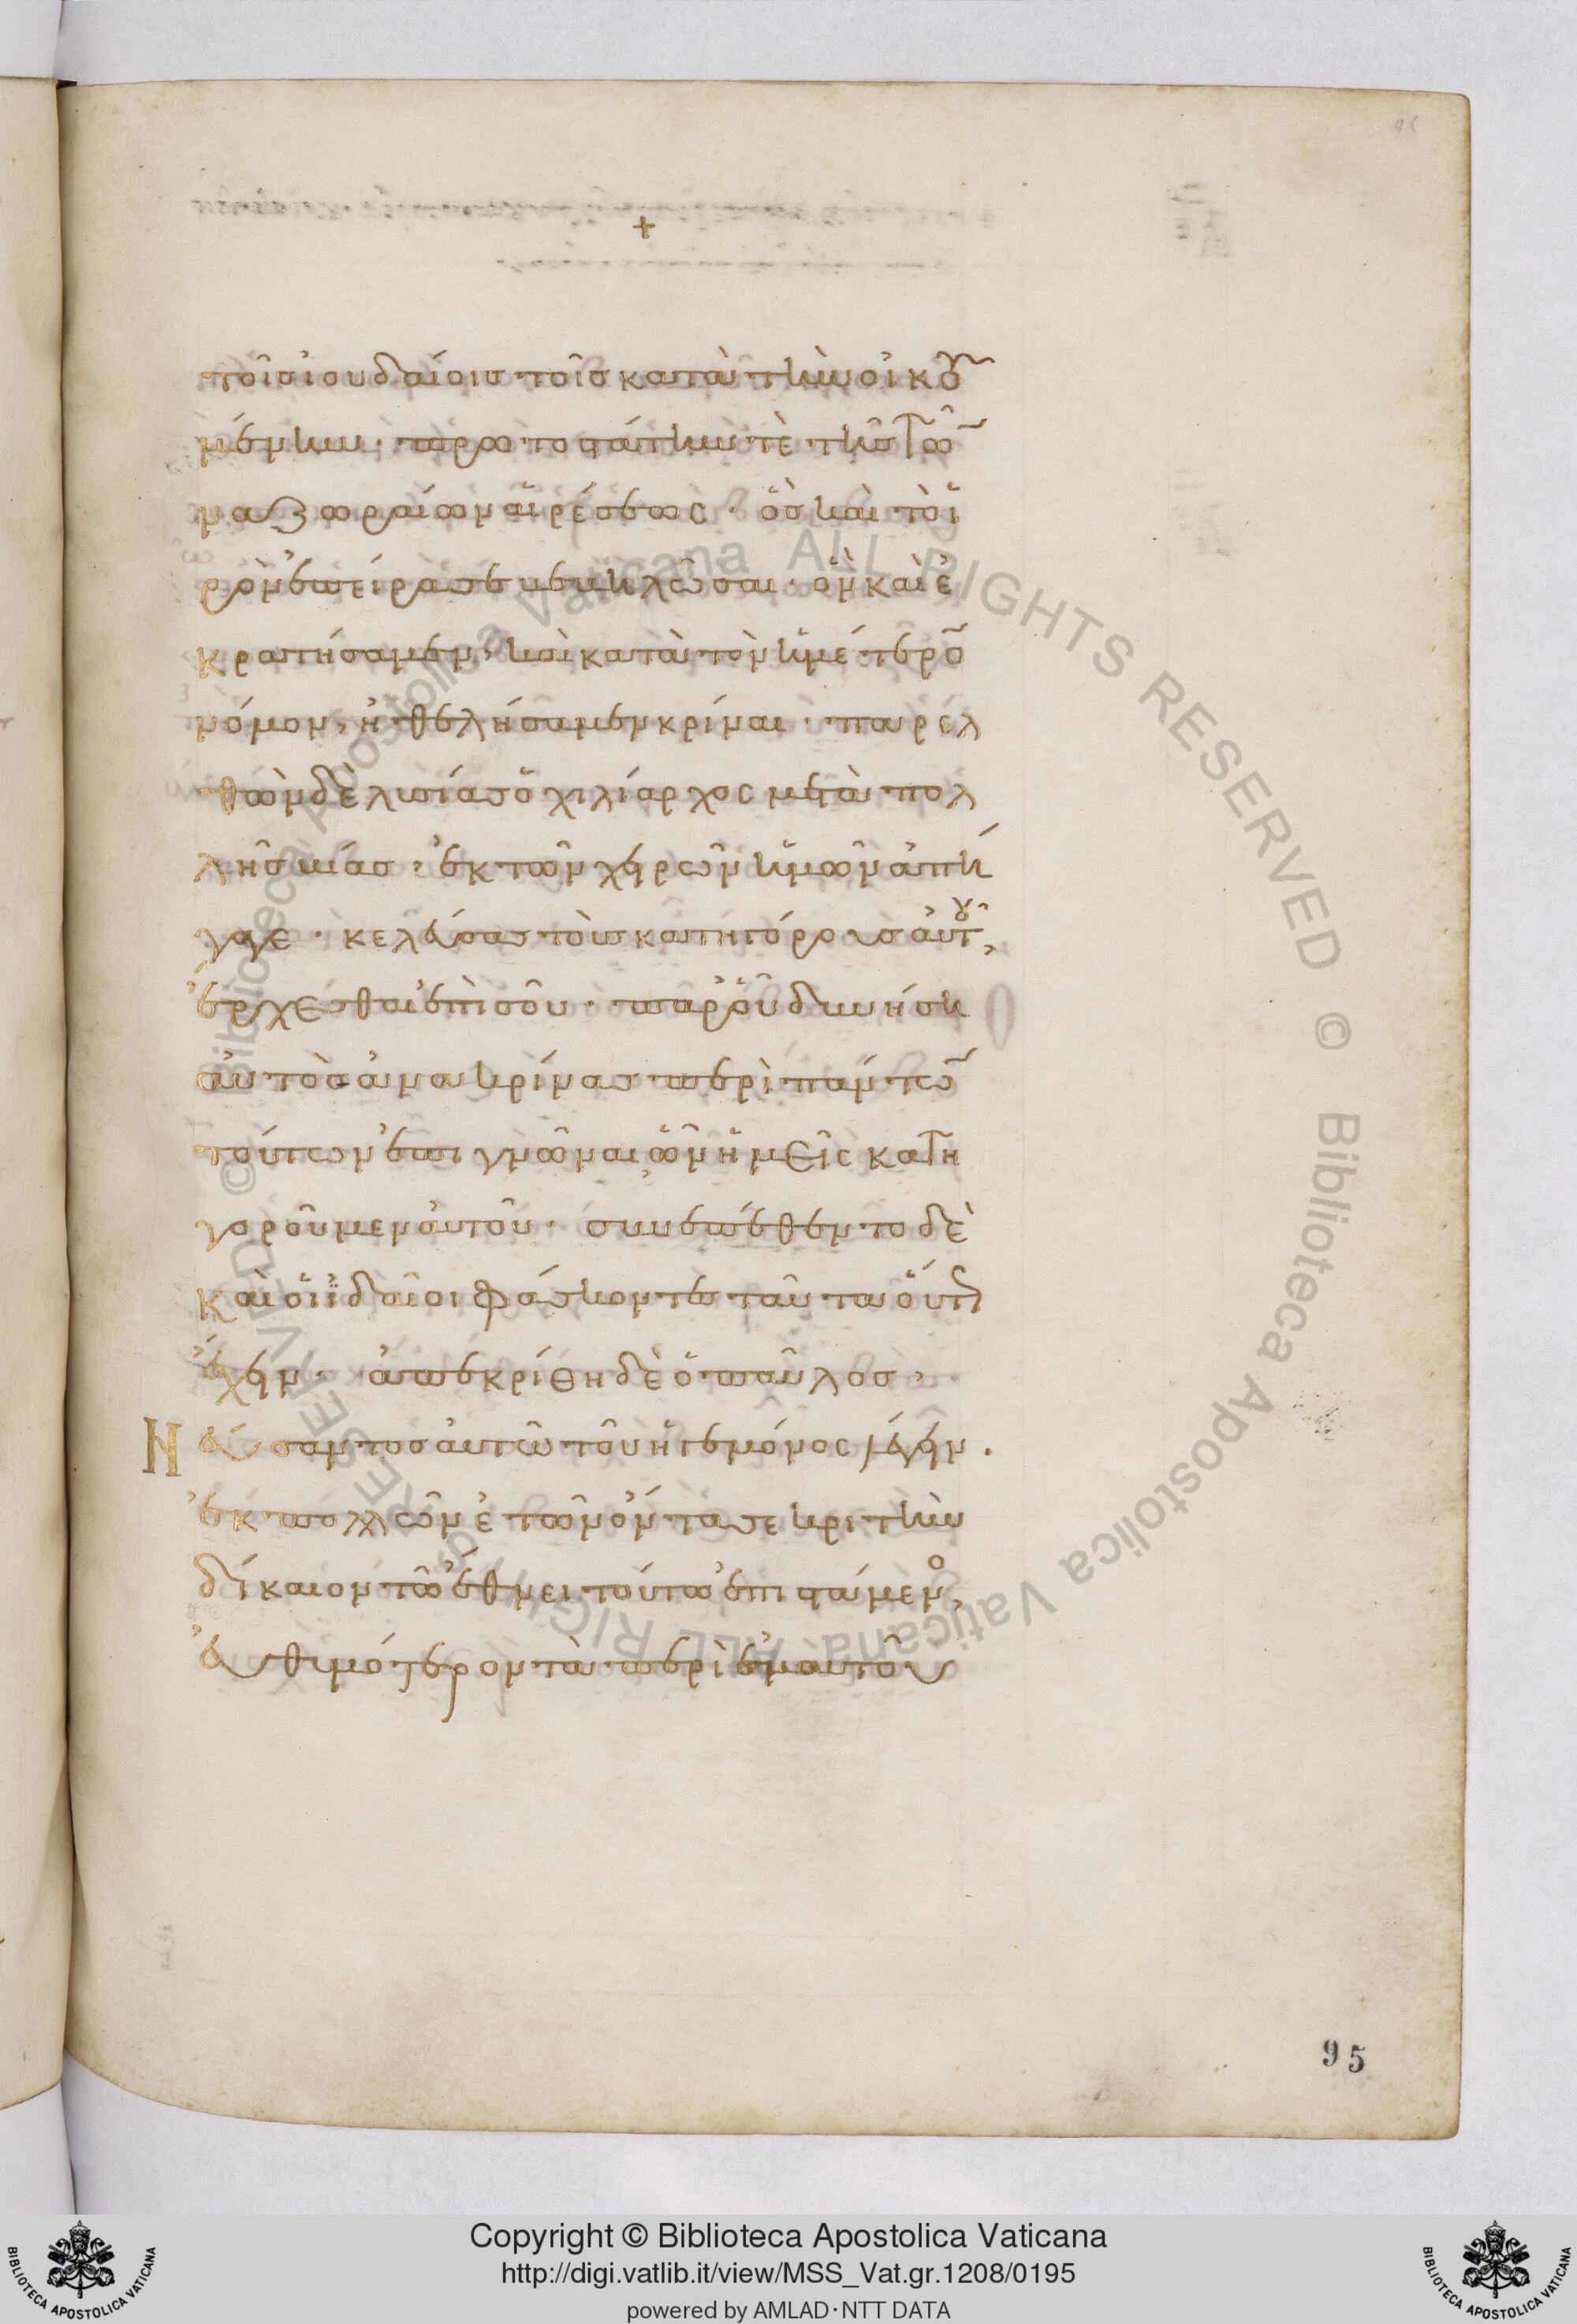 95
+
τοῖσ ἰουδαίοισ τοῖσ κατὰ τὴν οἰκου
μένην· πρωτοστάτην τὲ τῆσ τῶ̅
ναζωραίων αἱρέσεως· ὃσ καὶ τὸ ἱ
ρὸν ἐπείρασε βεβηλῶσαι· ὃν καὶ ἐ
κρατήσαμεν, καὶ κατὰ τὸν ἡμέτερο̅
νόμον, ἠθελήσαμεν κρίναι· παρελ
θὼν δὲ λυσίασ ὁ χιλίαρχος μετὰ πολ
λῆσ βίασ· ἐκ τῶν χειρῶν ἡμῶν ἀπή
γαγε· κελεύσασ τοὺσ κατηγόρουσ αὐτοῦ,
ἔρχεσθαι ἐπὶ σοῦ· παρ' οὗ δυνήση
αὐτὸσ ἀνακρίνασ περὶ πάντω̅
τούτων ἐπιγνῶναι ὧν ἡμεῖς κατη
γοροῦμεν αὐτοῦ· συνεπέθεντο δὲ
καὶ οἱ ἰδαῖοι φάσκοντεσ ταῦτα οὕτω
ἔχειν· ἀπεκρίθη δὲ ὁ παῦλοσ·
Νεύσαντοσ αὐτῶ τοῦ ἡγεμόνος λέγειν.
ἐκ πολλῶν ἐτῶν ὄντα σε κριτὴν
δίκαιον τῶ ἔθνει τούτω ἐπιστάμενο,
εὐθυμότερον τὰ περὶ ἐμαυτοῦ
95
Copyright © Biblioteca Apostolica Vaticana
http://digi.vatlib.it/view/MSS_Vat.gr.1208/0195
powered by AMLAD·NTT DATA